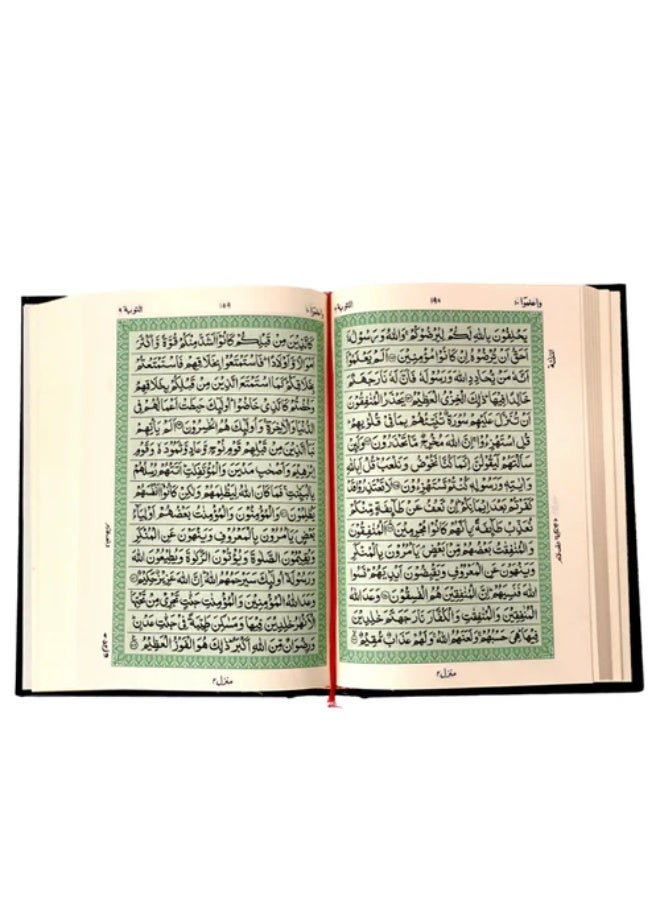 واعلموا ١٠
١٩٨
التوبة ٩
يَحْلِفُوْنَ بِاللّٰهِ لَكُمْ لِيُرْضُوْكُمْ ۚ وَاللّٰهُ وَرَسُوْلُهٗۤ
اَحَقُّ اَنْ يُّرْضُوْهُ اِنْ كَانُوْا مُؤْمِنِيْنَ ۝ اَلَمْ يَعْلَمُوْۤا
اَنَّهٗ مَنْ يُّحَادِدِ اللّٰهَ وَرَسُوْلَهٗ فَاَنَّ لَهٗ نَارَ جَهَنَّمَ
خَالِدًا فِيْهَا ؕ ذٰلِكَ الْخِزْيُ الْعَظِيْمُ ۝ يَحْذَرُ الْمُنٰفِقُوْنَ
اَنْ تُنَزَّلَ عَلَيْهِمْ سُوْرَةٌ تُنَبِّئُهُمْ بِمَا فِيْ قُلُوْبِهِمْ ؕ
قُلِ اسْتَهْزِءُوْا ۚ اِنَّ اللّٰهَ مُخْرِجٌ مَّا تَحْذَرُوْنَ ۝ وَلَئِنْ
سَاَلْتَهُمْ لَيَقُوْلُنَّ اِنَّمَا كُنَّا نَخُوْضُ وَنَلْعَبُ ؕ قُلْ اَبِاللّٰهِ
وَاٰيٰتِهٖ وَرَسُوْلِهٖ كُنْتُمْ تَسْتَهْزِءُوْنَ ۝ لَا تَعْتَذِرُوْا قَدْ
كَفَرْتُمْ بَعْدَ اِيْمَانِكُمْ ؕ اِنْ نَّعْفُ عَنْ طَآئِفَةٍ مِّنْكُمْ
نُعَذِّبْ طَآئِفَةًۢ بِاَنَّهُمْ كَانُوْا مُجْرِمِيْنَ ۝ اَلْمُنٰفِقُوْنَ
وَالْمُنٰفِقٰتُ بَعْضُهُمْ مِّنْۢ بَعْضٍ ۘ يَاْمُرُوْنَ بِالْمُنْكَرِ
وَيَنْهَوْنَ عَنِ الْمَعْرُوْفِ وَيَقْبِضُوْنَ اَيْدِيَهُمْ ؕ نَسُوا
اللّٰهَ فَنَسِيَهُمْ ؕ اِنَّ الْمُنٰفِقِيْنَ هُمُ الْفٰسِقُوْنَ ۝ وَعَدَ اللّٰهُ
الْمُنٰفِقِيْنَ وَالْمُنٰفِقٰتِ وَالْكُفَّارَ نَارَ جَهَنَّمَ خٰلِدِيْنَ
فِيْهَا ؕ هِيَ حَسْبُهُمْ ۚ وَلَعَنَهُمُ اللّٰهُ ۚ وَلَهُمْ عَذَابٌ مُّقِيْمٌ ۝
منزل ٢
واعلموا ١٠
التوبة ٩
كَالَّذِيْنَ مِنْ قَبْلِكُمْ كَانُوْۤا اَشَدَّ مِنْكُمْ قُوَّةً وَّاَكْثَرَ
اَمْوَالًا وَّاَوْلَادًا ؕ فَاسْتَمْتَعُوْا بِخَلَاقِهِمْ فَاسْتَمْتَعْتُمْ
بِخَلَاقِكُمْ كَمَا اسْتَمْتَعَ الَّذِيْنَ مِنْ قَبْلِكُمْ بِخَلَاقِهِمْ
وَخُضْتُمْ كَالَّذِيْ خَاضُوْا ؕ اُولٰٓئِكَ حَبِطَتْ اَعْمَالُهُمْ فِي
الدُّنْيَا وَالْاٰخِرَةِ ۚ وَاُولٰٓئِكَ هُمُ الْخٰسِرُوْنَ ۝ اَلَمْ يَاْتِهِمْ
نَبَاُ الَّذِيْنَ مِنْ قَبْلِهِمْ قَوْمِ نُوْحٍ وَّعَادٍ وَّثَمُوْدَ ۙ وَقَوْمِ
اِبْرٰهِيْمَ وَاَصْحٰبِ مَدْيَنَ وَالْمُؤْتَفِكٰتِ ؕ اَتَتْهُمْ رُسُلُهُمْ
بِالْبَيِّنٰتِ ۚ فَمَا كَانَ اللّٰهُ لِيَظْلِمَهُمْ وَلٰكِنْ كَانُوْۤا اَنْفُسَهُمْ
يَظْلِمُوْنَ ۝ وَالْمُؤْمِنُوْنَ وَالْمُؤْمِنٰتُ بَعْضُهُمْ اَوْلِيَآءُ
بَعْضٍ ۘ يَاْمُرُوْنَ بِالْمَعْرُوْفِ وَيَنْهَوْنَ عَنِ الْمُنْكَرِ
وَيُقِيْمُوْنَ الصَّلٰوةَ وَيُؤْتُوْنَ الزَّكٰوةَ وَيُطِيْعُوْنَ اللّٰهَ
وَرَسُوْلَهٗ ؕ اُولٰٓئِكَ سَيَرْحَمُهُمُ اللّٰهُ ؕ اِنَّ اللّٰهَ عَزِيْزٌ حَكِيْمٌ ۝
وَعَدَ اللّٰهُ الْمُؤْمِنِيْنَ وَالْمُؤْمِنٰتِ جَنّٰتٍ تَجْرِيْ مِنْ تَحْتِهَا
الْاَنْهٰرُ خٰلِدِيْنَ فِيْهَا وَمَسٰكِنَ طَيِّبَةً فِيْ جَنّٰتِ عَدْنٍ ؕ
وَرِضْوَانٌ مِّنَ اللّٰهِ اَكْبَرُ ؕ ذٰلِكَ هُوَ الْفَوْزُ الْعَظِيْمُ ۝
منزل ٢